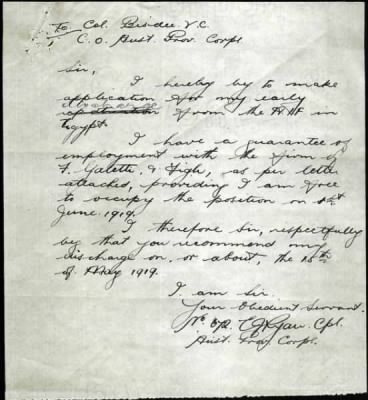 To Col. Bisdee V.C.
C.O. Aust. Prov. Corps.
Sir,
I hereby by to make
application for my early
discharge
from the AIF in
Egypt.
I have a guarantee of
employment with the firm of
F. & as per letter
attached, providing I am free
to occupy the position on 1st
June 1919.
I therefore Sir, respectfully
beg that you recommend my
discharge on, or about, the 15th
of May 1919.
I am Sir.
Your Obedient Servant
No. Cpl.
Aust. Prov Corps.